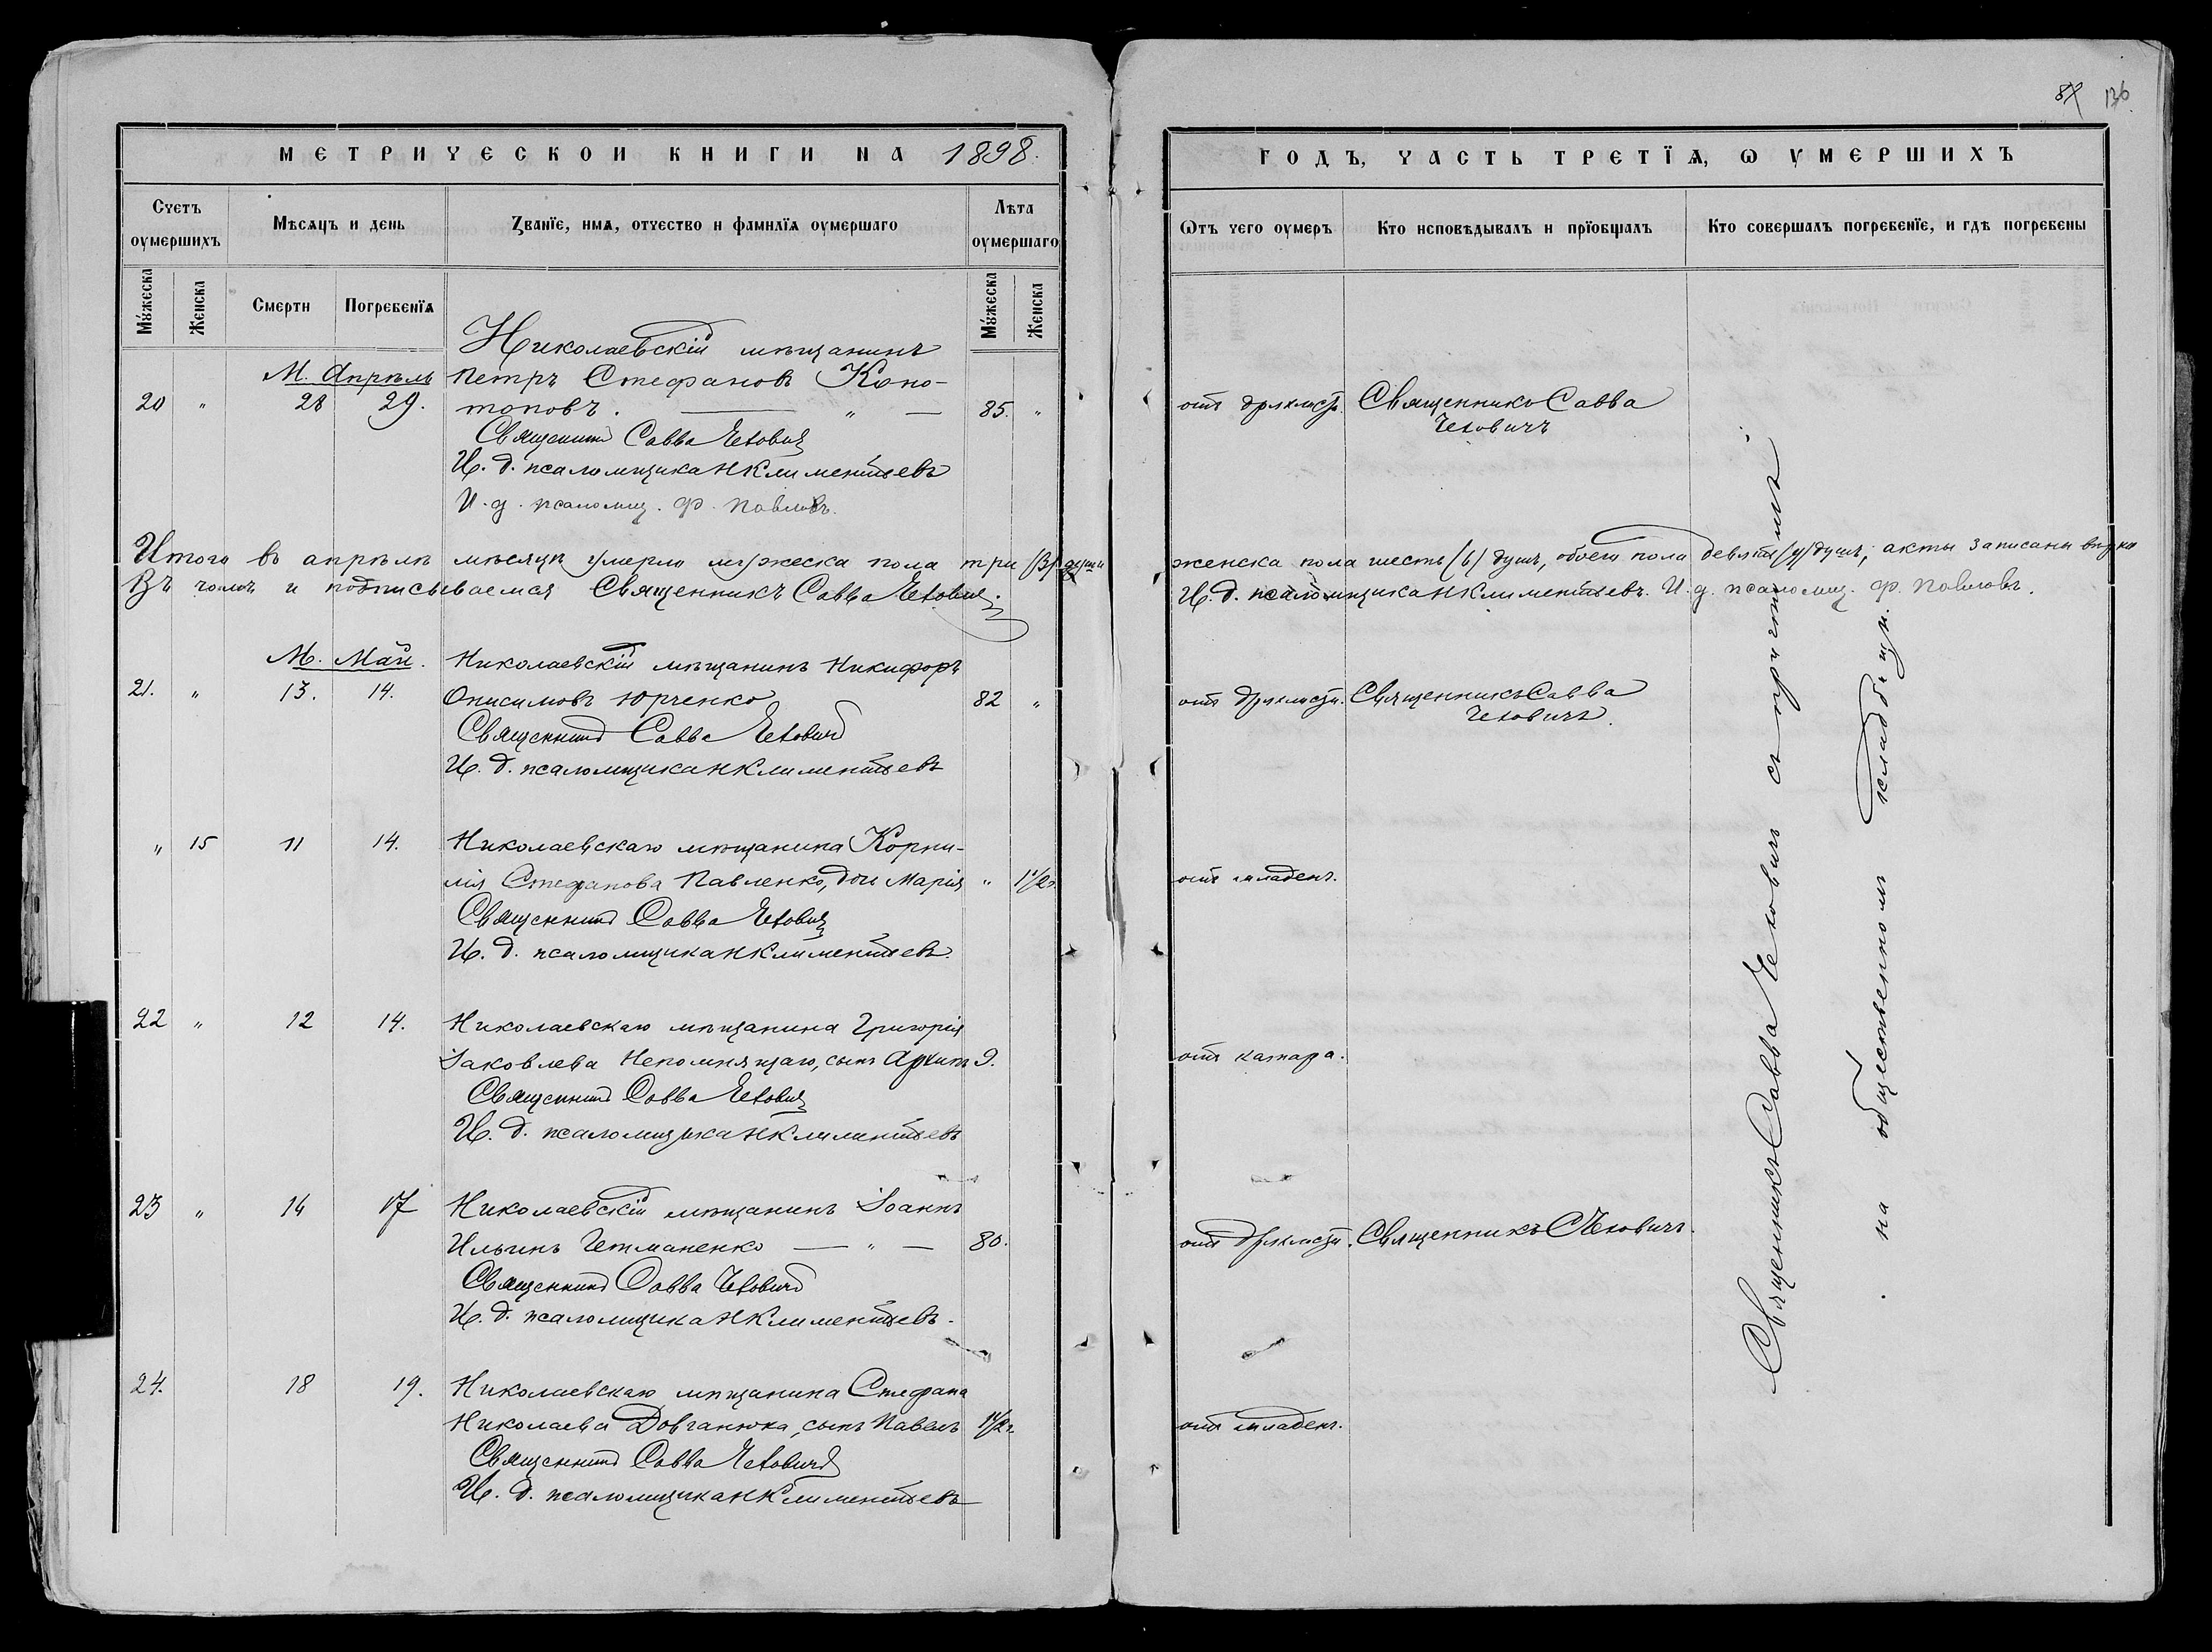 87 136
МЕТРИЧЕСКОЙ КНИГИ НА 1898.
ГОДЪ, ЧАСТЬ ТРЕТЇѦ, Ѡ УМЕРШИХЪ
Счетъ оумершихъ
Мѣсѧцъ и день
Званїе, имѧ, отчество и фамилїѧ оумершаго
Лѣта оумершаго
Мꙋжеска
Женска
Смерти
Погребенїѧ
Мꙋжеска
Женска
Ѿтъ чего оумеръ
Кто исповѣдывалъ и прїобщалъ
Кто совершалъ погребенїе, и гдѣ погребены
Николаевскій мѣщанинъ
М. Апрѣль Петръ Стефановъ Коно-
20 " 28 29. топовъ. — " — 85. " отъ дряхлости. Священникъ Савва
Чехович
Священникъ Савва Чеховичъ
И. д. псаломщика Н Климентьевъ
И. д. псаломщ. Ф. Павловъ.
Итого въ апрѣлѣ мѣсяцѣ умерло мужеска пола три (3) души женска пола шесть (6) душъ, обоего пола девять (9) душъ, акты записаны вѣрно
Въ чемъ и подписываемся Священникъ Савва Чеховичъ. И. д. псаломщика Н Климентьевъ. И. д. псаломщ. Ф. Павловъ.
М. Май. Николаевскій мѣщанинъ Никифоръ
21. " 13. 14. Онисимовъ Юрченко 82 " отъ дряхлости. Священникъ Савва
Чеховичъ.
Священникъ Савва Чеховичъ
И. д. псаломщика Н Климентьевъ
" 15 11 14. Николаевскаго мѣщанина Корни-
лія Стефанова Павленко, дочь Марія " 1 1/2 г. отъ младенч.
Священникъ Савва Чеховичъ
И. д. псаломщика Н Климентьевъ.
22 " 12 14. Николаевскаго мѣщанина Григорія
Іаковлева Непомнящаго, сынъ Архипъ 9. отъ катара.
Священникъ Савва Чеховичъ
И. д. псаломщика Н Климентьевъ
23 " 14 17 Николаевскій мѣщанинъ Іоаннъ
Ильинъ Гетманенко — " — 80. отъ дряхлости. Священникъ С Чеховичъ.
Священникъ Савва Чеховичъ
И. д. псаломщика Н Климентьевъ.
24. 18 19. Николаевскаго мѣщанина Стефана
Николаева Довганюка, сынъ Павелъ 1 1/2 г. отъ младенч.
Священникъ Савва Чеховичъ
И. д. псаломщика Н Климентьевъ
Священникъ Савва Чеховичъ съ причтомъ
на общественномъ кладбищѣ.